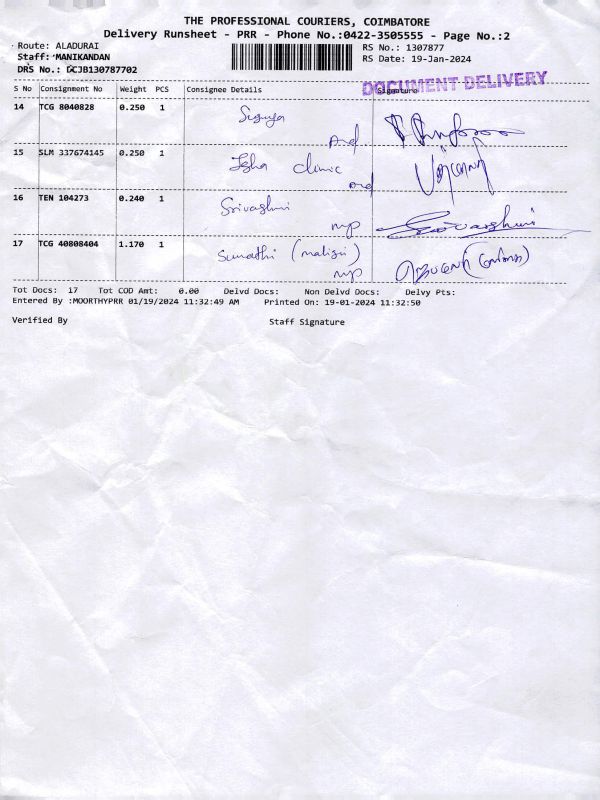 THE PROFESSIONAL COURIERS, COIMBATORE
Delivery Runsheet - PRR - Phone No.:0422-3505555 - Page No.:2
Route: ALADURAI
RS No.: 1307877
Staff: MANIKANDAN
RS Date: 19-Jan-2024
DRS No.: DCJB130787702
DOCUMENT DELIVERY
S No Consignment No Weight PCS Consignee Details Signature
14 TCG 8040828 0.250 1
15 SLM 337674145 0.250 1 Isha clinic
16 TEN 104273 0.240 1 Srivashni
17 TCG 40808404 1.170 1 Sumathi
Tot Docs: 17 Tot COD Amt: 0.00 Delvd Docs: Non Delvd Docs: Delvy Pts:
Entered By :MOORTHYPRR 01/19/2024 11:32:49 AM Printed On: 19-01-2024 11:32:50
Verified By Staff Signature